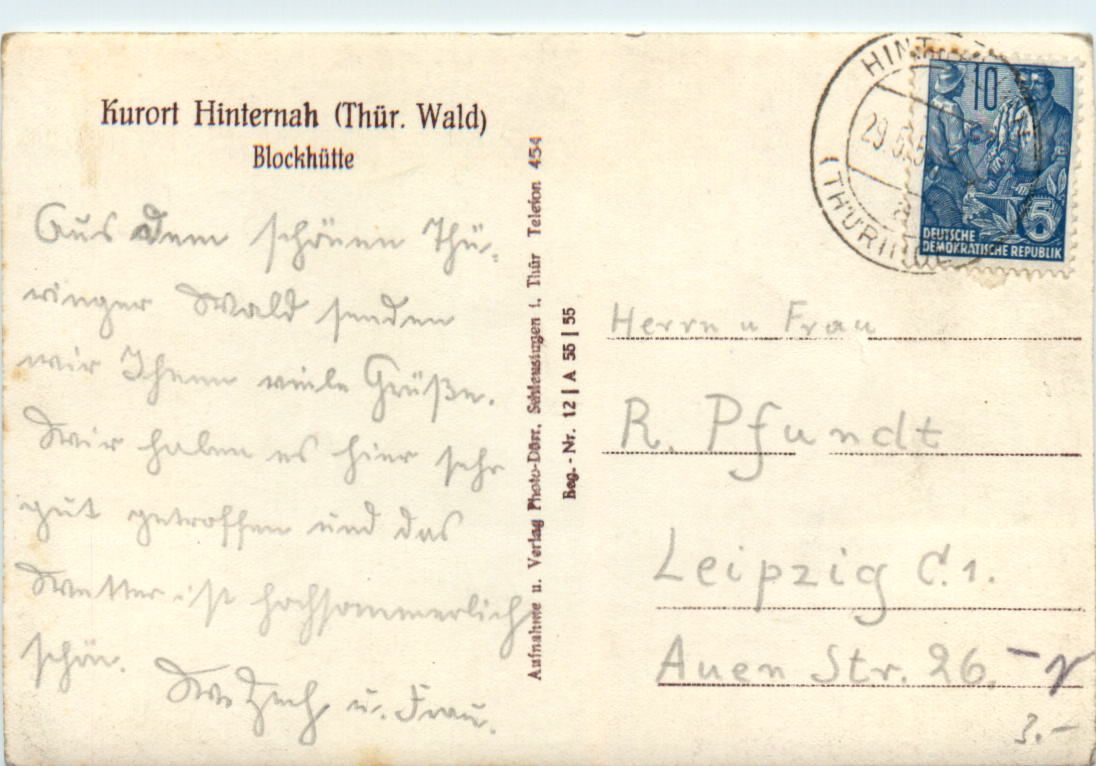 Kurort Hinternah (Thür. Wald)
Blockhütte
Aus dem schönen Thü-
ringer Wald senden
wir Ihnen viele Grüße.
Wir haben es hier sehr
gut getroffen und das
Wetter ist hochsommerlich
schön.
u. Frau.
Aufnahme u. Verlag Photo-Dörr, Schleusingen i. Thür Telefon 454
Beg.-Nr. 12 | A 55 | 55
HINT
29.
(THÜRI
10
5
DEUTSCHE
DEMOKRATISCHE REPUBLIK
Herrn u Frau
R. Pfundt
Leipzig C.1.
Auen Str. 26.
3.-